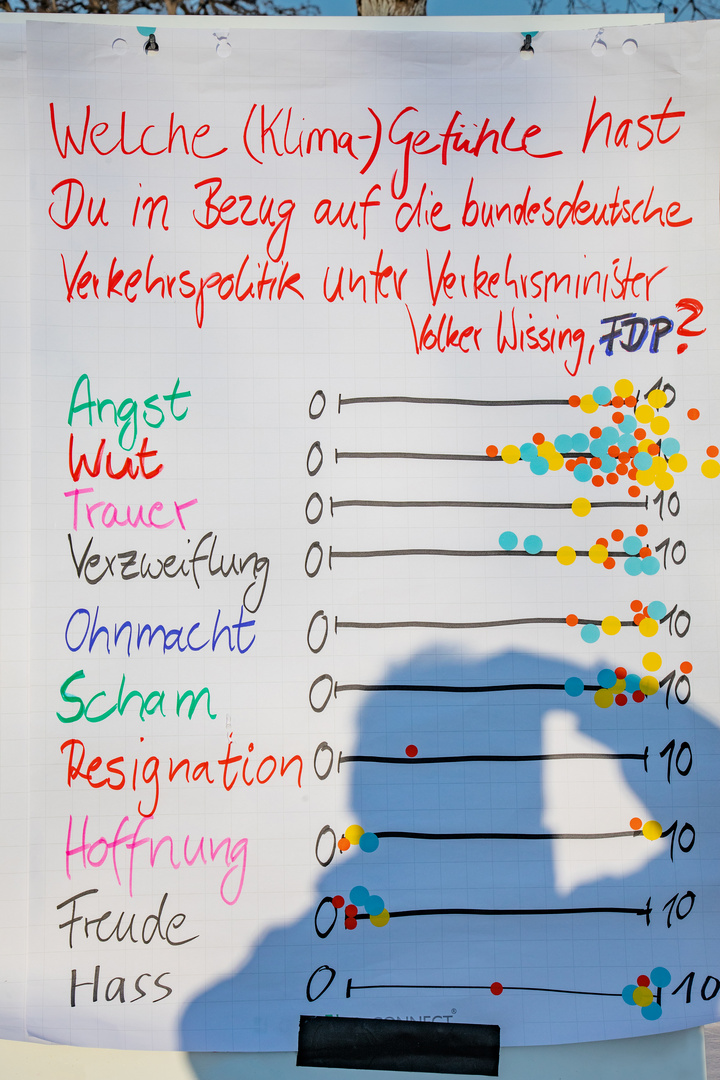 Welche (Klima-) Gefühle hast
Du in Bezug auf die bundesdeutsche
Verkehrspolitik unter Verkehrsminister
Volker Wissing, FDP?
Angst 0 10
Wut 0
Trauer 0 10
Verzweiflung 0 10
Ohnmacht 0 10
Scham 0 10
Resignation 0 10
Hoffnung 0 10
Freude 0 10
Hass 0 10